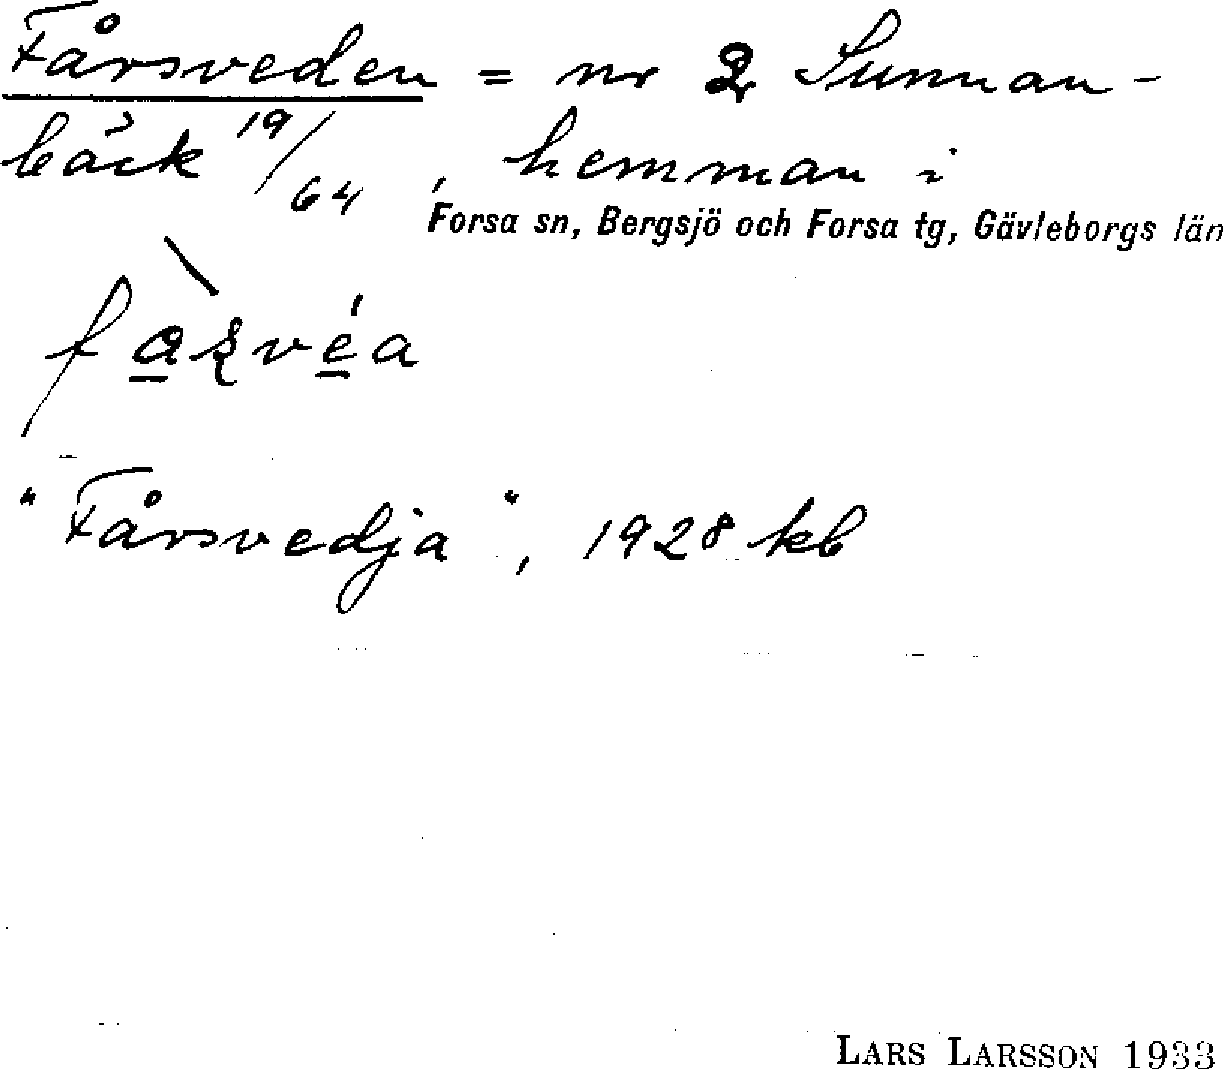 Fårsveden = nr 2 Sunnan-
bäck 19/64, hemman i
Forsa sn, Bergsjö och Forsa tg, Gävleborgs län
"Fårsvedja", 1928 kb
LARS LARSSON 1933